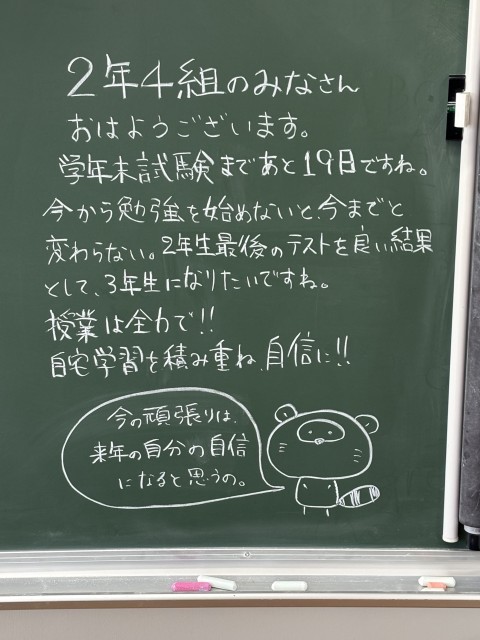 2年4組のみなさん
おはようございます。
学年末試験まであと19日ですね。
今から勉強を始めないと、今までと
変わらない。2年生最後のテストを良い結果
として、3年生になりたいですね。
授業は全力で!!
自宅学習を積み重ね、自信に!!
今の頑張りは、
来年の自分の自信
になると思うの。